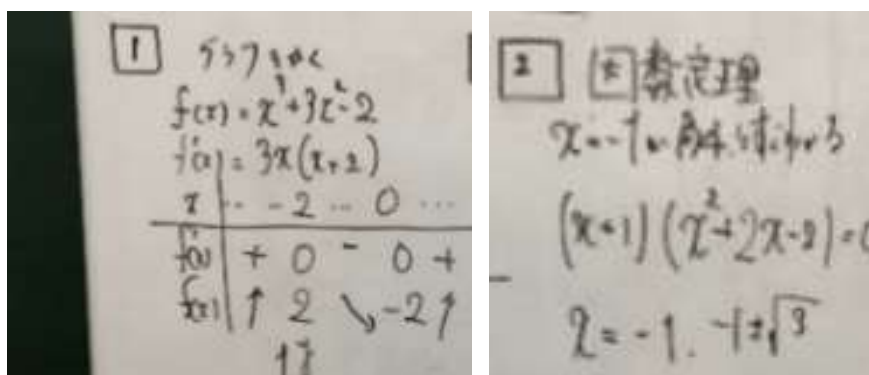 1 グラフをかく
f(x) = x³+3x²-2
f'(x) = 3x(x+2)
x ... -2 ... 0 ...
f'(x) + 0 - 0 +
f(x) ↑ 2 ↘ -2 ↑
2 因数定理
x=-1
(x+1)(x²+2x-2)=0
x = -1. -1±√3